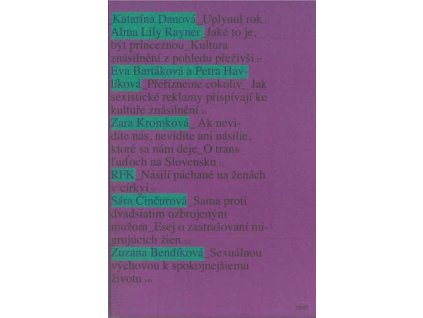 _Katarína Danová_Uplynul rok_
Alma Lily Rayner_Jaké to je,
být princeznou_Kultura
znásilnění z pohledu přeživší
Eva Bartáková a Petra Hav-
líková_Přeřízneme cokoliv_Jak
sexistické reklamy přispívají ke
kultuře znásilnění
Zara Kromková_Ak nevi-
díte nás, nevidíte ani násilie,
ktoré sa nám deje_O trans
ľuďoch na Slovensku
RFK_Násilí páchané na ženách
v církvi
Sára Činčurová_Sama proti
dvadsiatim ozbrojeným
mužom_Esej o zastrašovaní mi-
grujúcich žien
Zuzana Bendíková_Sexuálnou
výchovou k spokojnejšiemu
životu